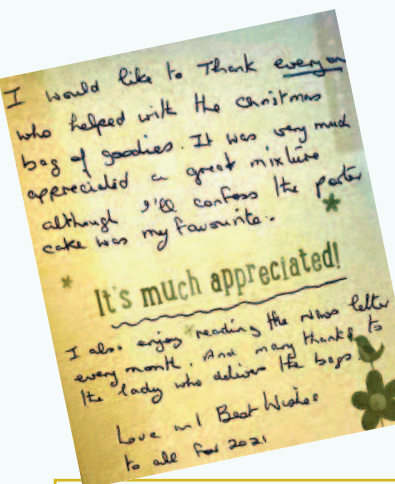 I would like to Thank everyon
who helped with the christmas
bag of goodies. It was very much
appreciated a great mixture
although I'll confess the porter
cake was my favourite.
It's much appreciated!
I also enjoy reading the News letter
every month. And many thanks to
the lady who delivers the bags
Love and Best Wishes
to all for 2021